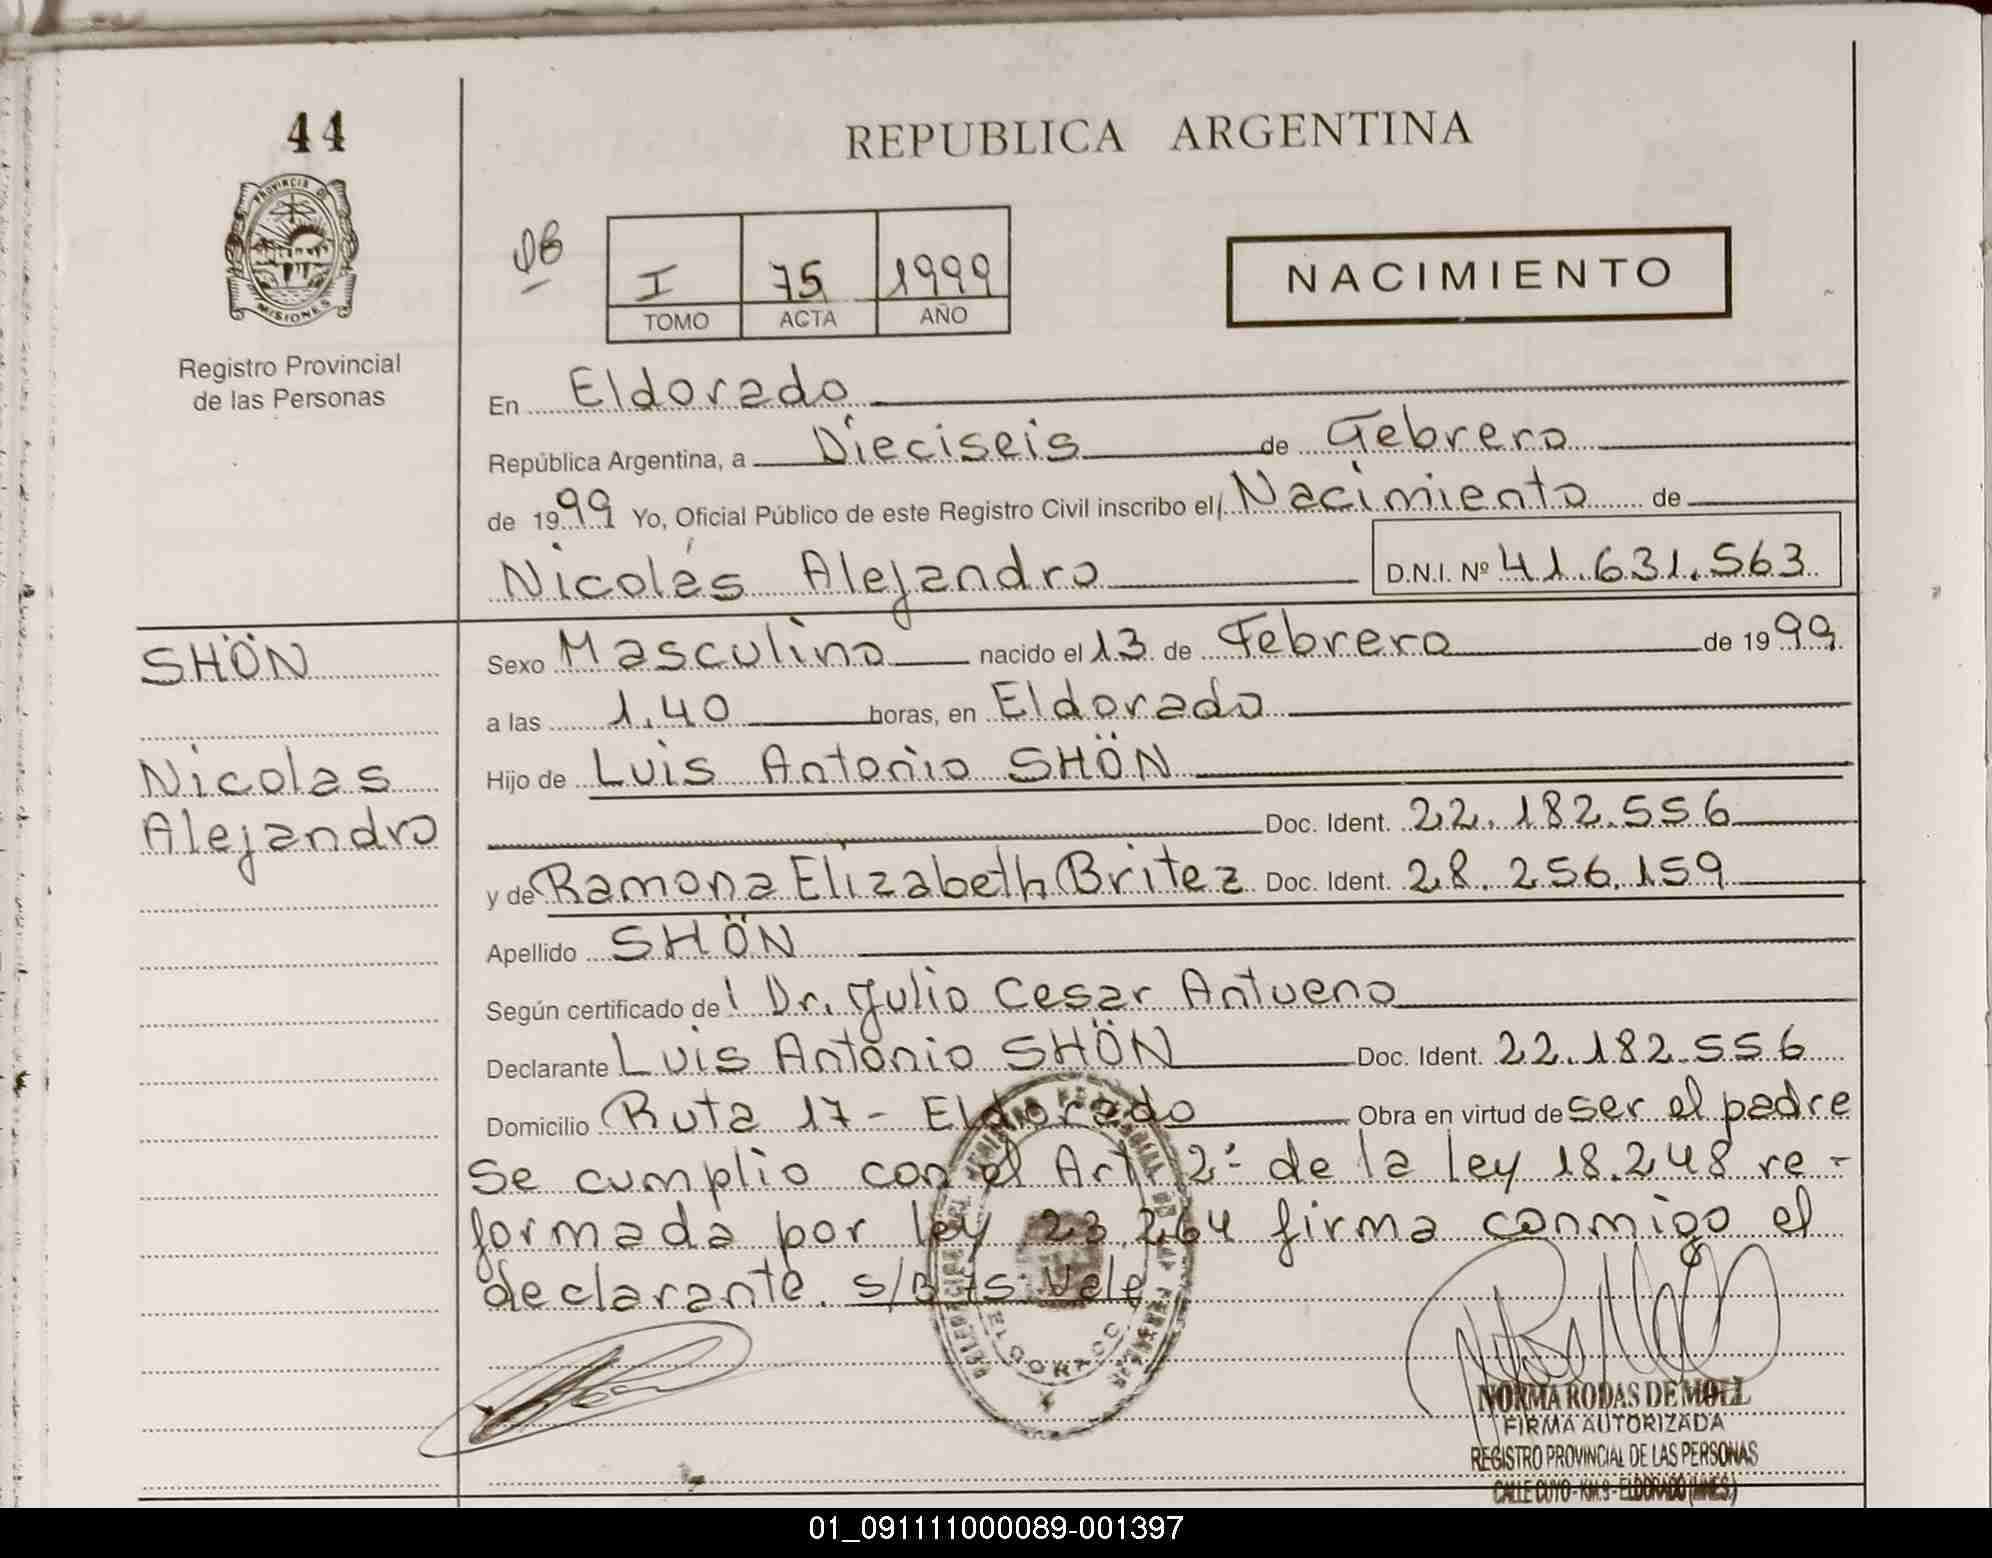 44
REPUBLICA ARGENTINA
PROVINCIA DE
MISIONES
I 75 1999
TOMO ACTA AÑO
NACIMIENTO
Registro Provincial
de las Personas
En Eldorado
República Argentina, a Dieciseis de Febrero
de 1999 Yo, Oficial Público de este Registro Civil inscribo el Nacimiento de
Nicolás Alejandro D.N.I. Nº 41.631.563
SHÖN
Nicolas
Alejandro
Sexo Masculino nacido el 13 de Febrero de 1999
a las 1.40 horas, en Eldorado
Hijo de Luis Antonio SHÖN
Doc. Ident. 22.182.556
y de Ramona Elizabeth Britez Doc. Ident. 28.256.159
Apellido SHÖN
Según certificado de Dr. Julio Cesar Antueno
Declarante Luis Antonio SHÖN Doc. Ident. 22.182.556
Domicilio Ruta 17 - Eldorado Obra en virtud de ser el padre
Se cumplio con el Art. 2º de la ley 18.248 re-
formada por ley 23.264 firma conmigo el
declarante. s/B 75: Vale
ELDORADO
NORMA RODAS DE MOLL
FIRMA AUTORIZADA
REGISTRO PROVINCIAL DE LAS PERSONAS
CALLE CUYO - KM. 9 - ELDORADO (MNES.)
01_091111000089-001397